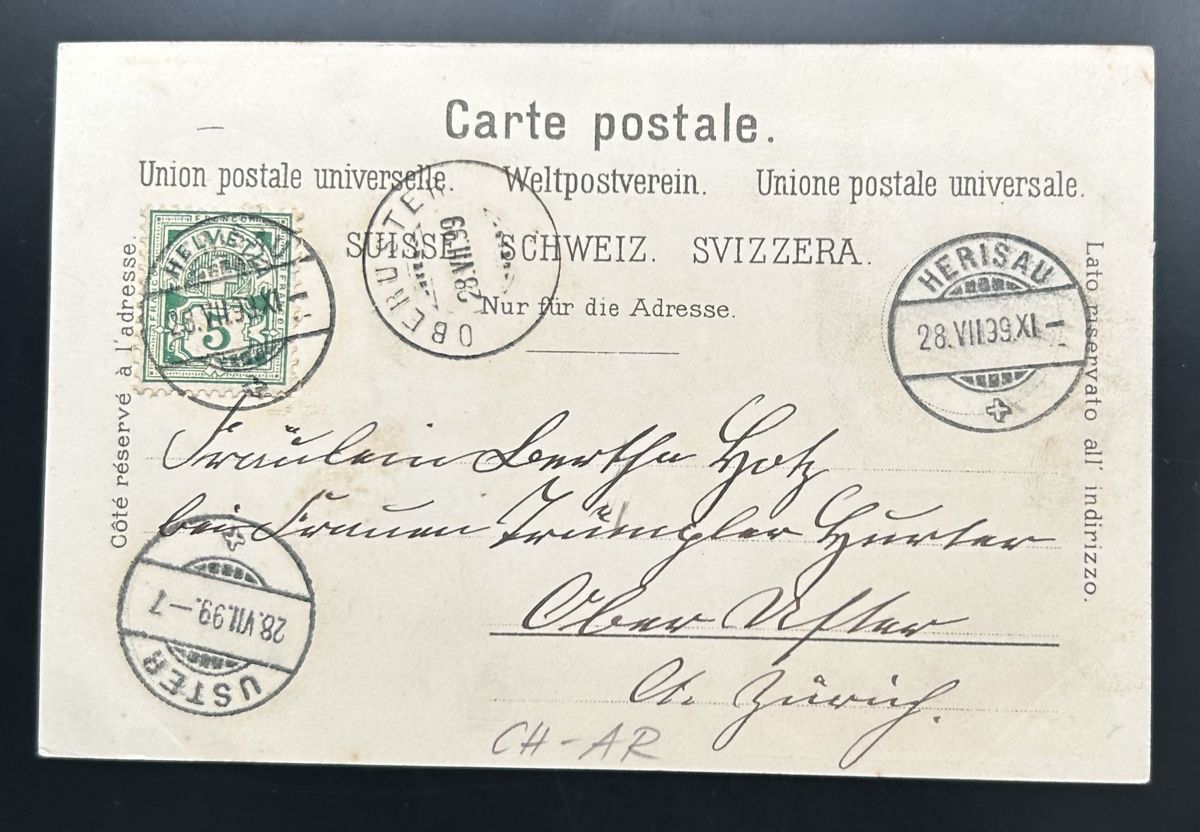 Carte postale.
Union postale universelle. Weltpostverein. Unione postale universale.
SUISSE. SCHWEIZ. SVIZZERA.
Nur für die Adresse.
Côté réservé à l'adresse.
Lato riservato all' indirizzo.
FRANCO
HELVETIA
5
OBERUSTER
28.VII.99
HERISAU
28.VII.99.XI.–
Fräulein Bertha Hotz
bei Frauen Trümpler Hurter
Ober Uster
Ct. Zürich.
USTER
28.VII.99.–7
CH-AR